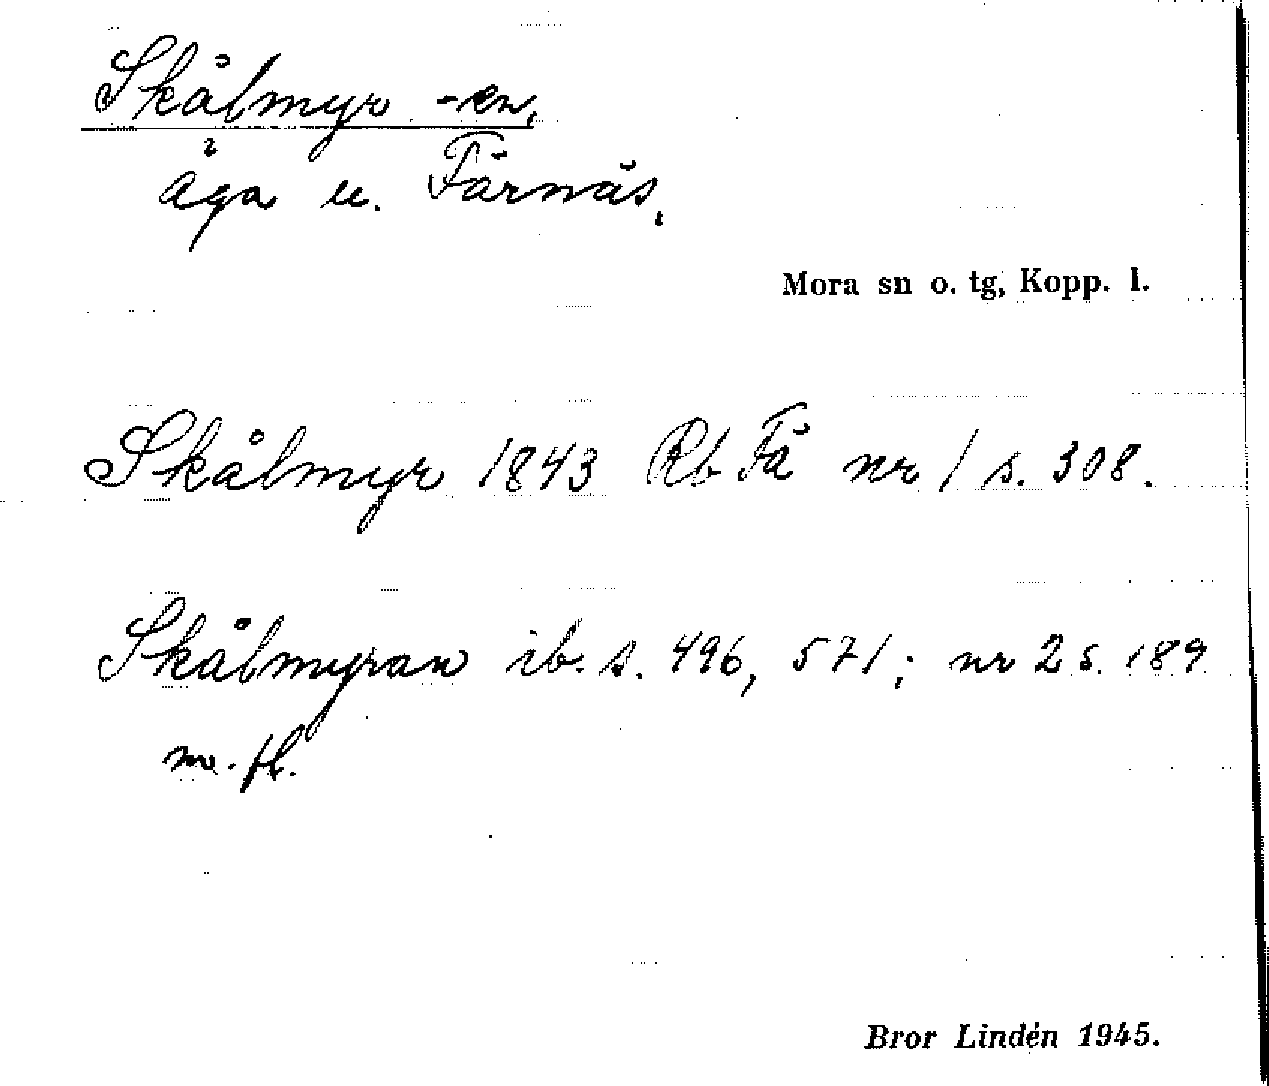 Skålmyr -en,
äga u. Färnäs,
Mora sn o. tg, Kopp. l.
Skålmyr 1843 Rb Fä nr 1 s. 308.
Skålmyran ib. s. 496, 571; nr 2 s. 189
m. fl.
Bror Lindén 1945.